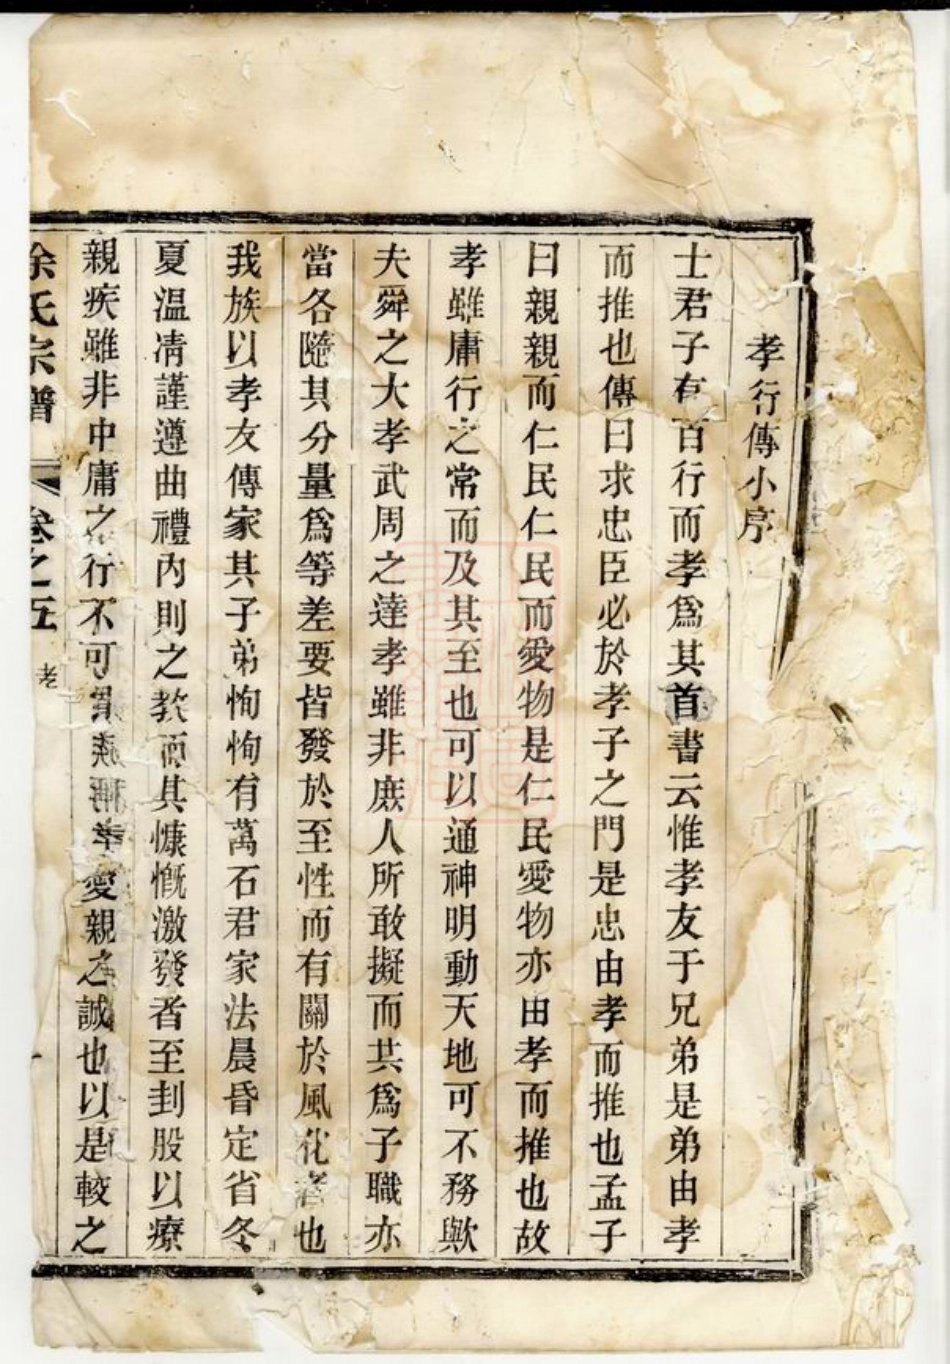 孝行傳小序
士君子有百行而孝爲其首書云惟孝友于兄弟是弟由孝
而推也傳曰求忠臣必於孝子之門是忠由孝而推也孟子
曰親親而仁民仁民而愛物是仁民愛物亦由孝而推也故
孝雖庸行之常而及其至也可以通神明動天地可不務歟
夫舜之大孝武周之達孝雖非庶人所敢擬而其爲子職亦
當各隨其分量爲等差要皆發於至性而有關於風化者也
我族以孝友傳家其子弟恂恂有萬石君家法晨昏定省冬
夏温凊謹遵曲禮內則之教而其慷慨激發者至刲股以療
親疾雖非中庸之行不可愛親之誠也以是較之
徐氏宗譜 卷之五 孝